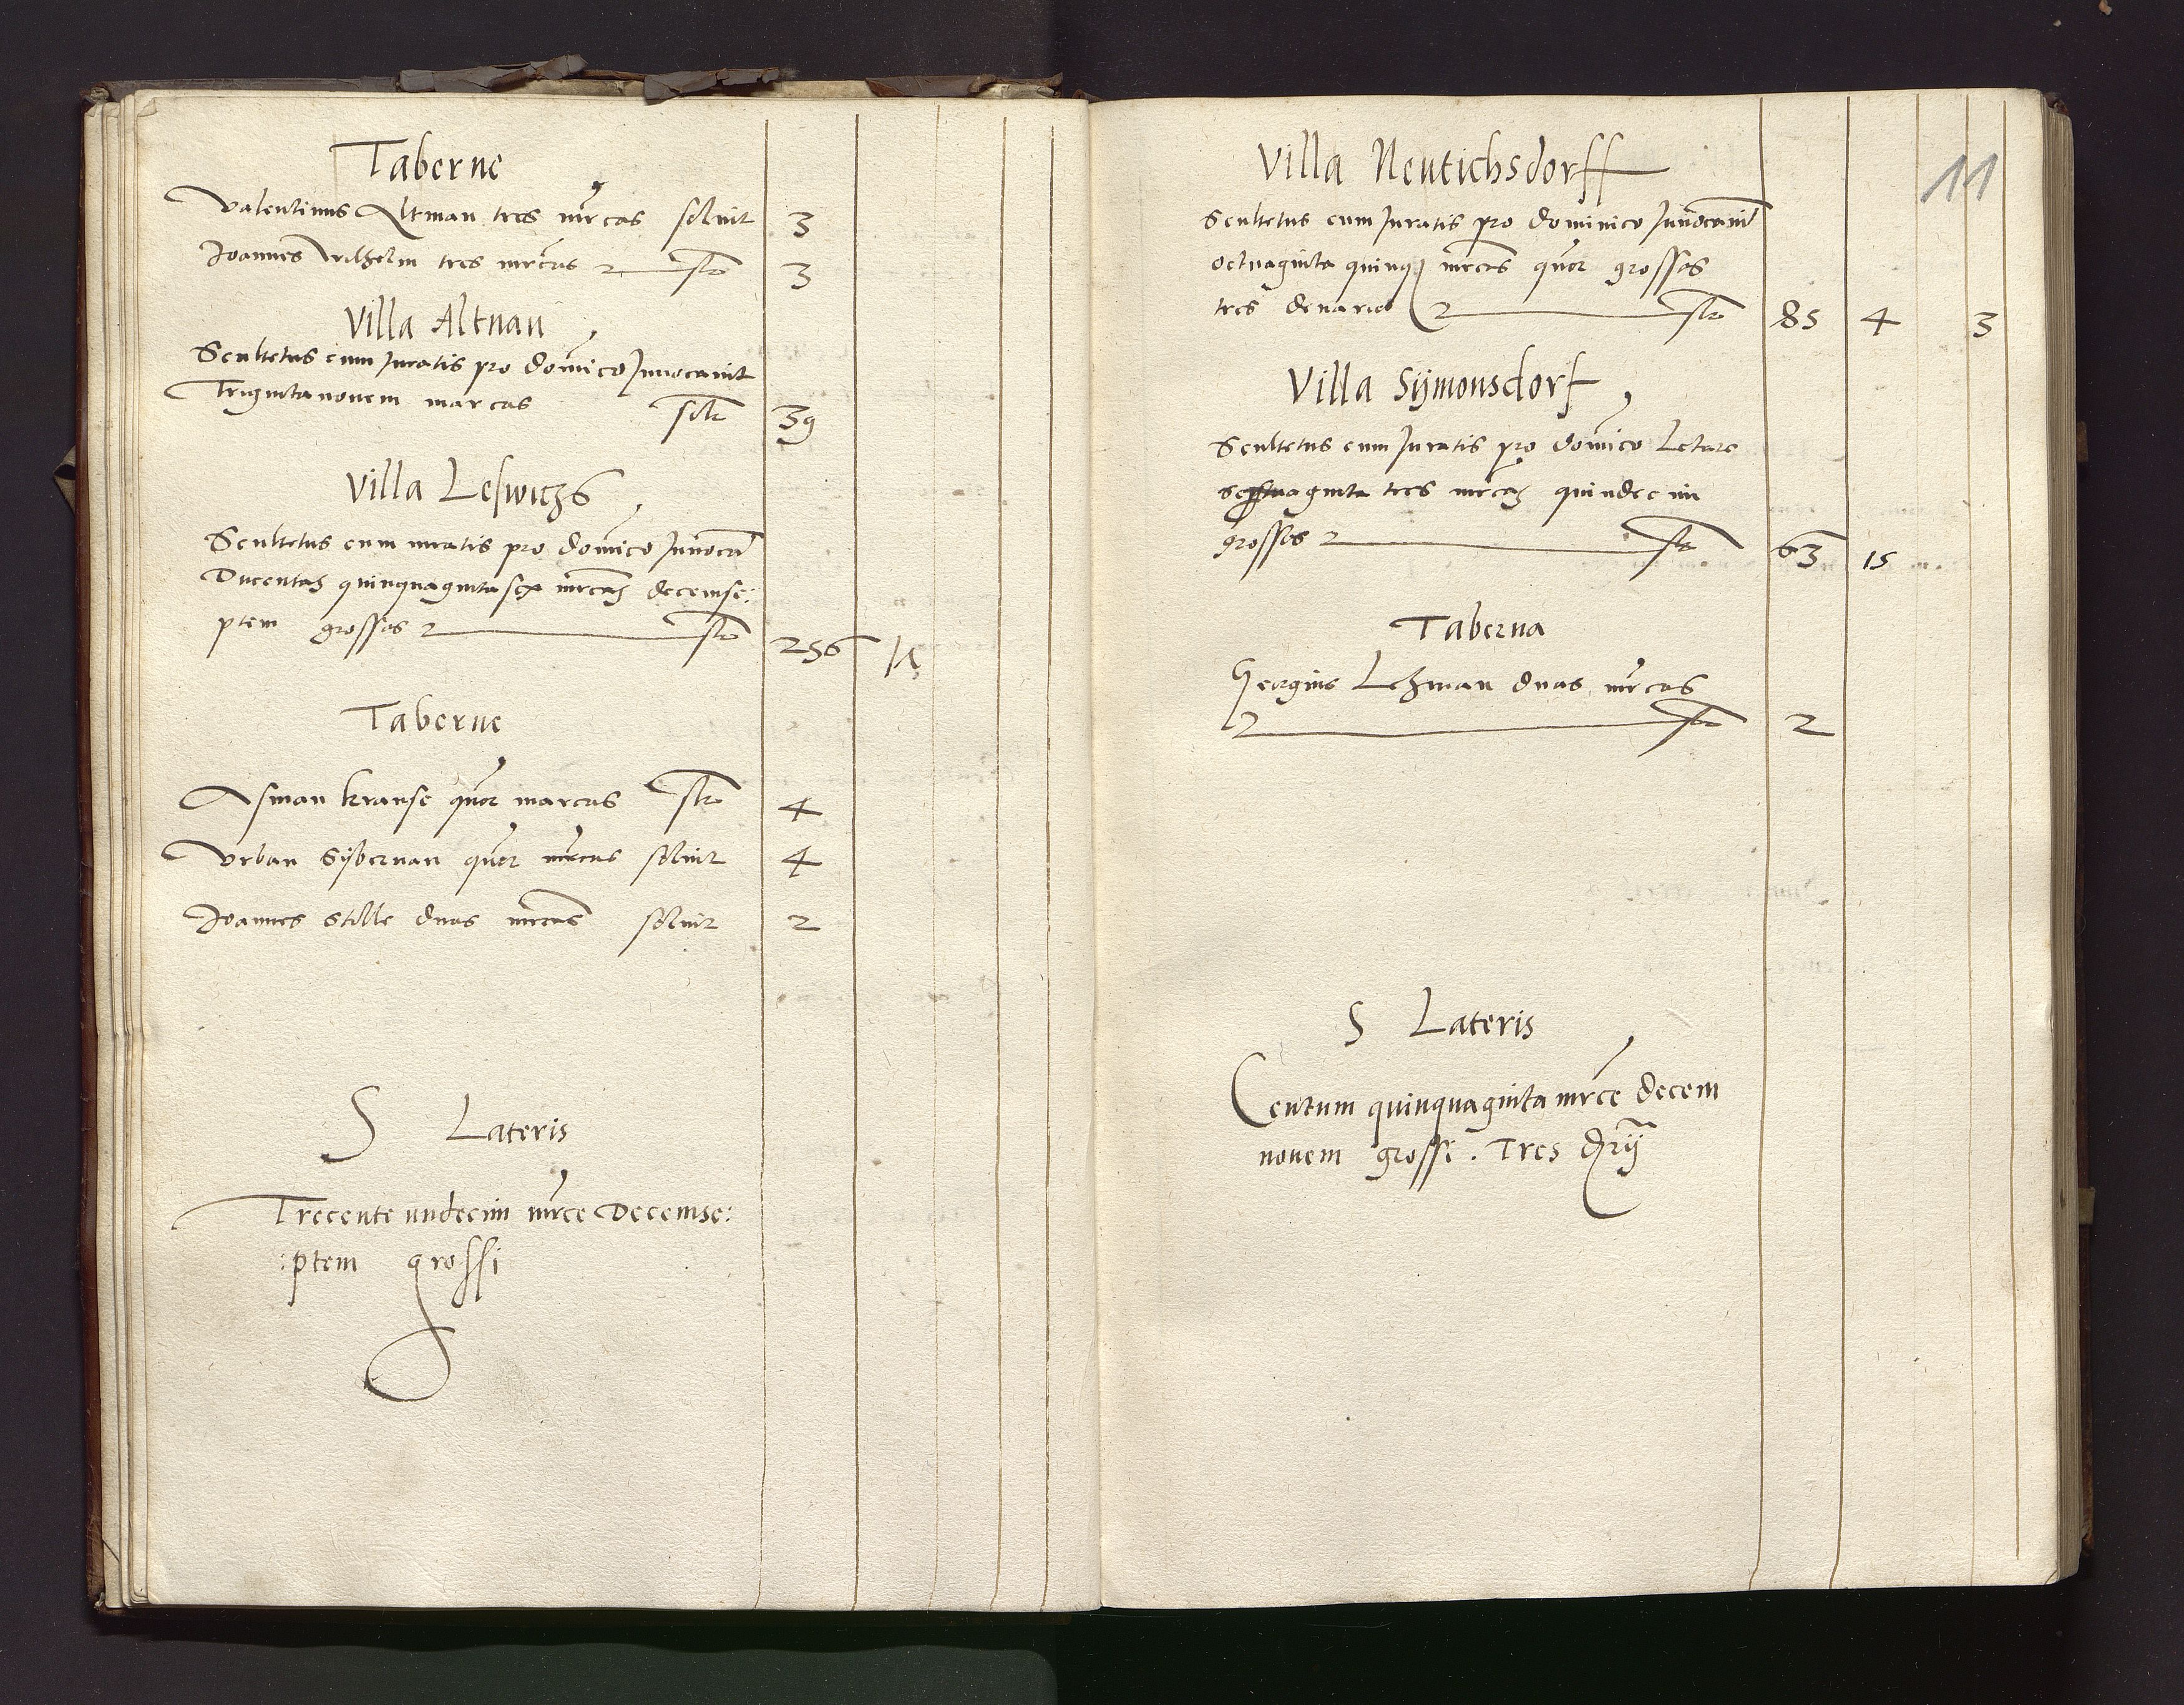 Taberne
Valentinus Altman tres mrcas soluit 3
Joannes Wilhelm tres mrcas slt 3
Villa Altnau
Scultetus cum Juratis pro domico Juuocauit
Trigintanouem marcas solt 39
Villa Leswitz
Scultetus cum iuratis pro domico Juuocauit
Ducentas quinquagintasex mrcas decemse:
ptem grossos slt 256 17
Taberne
Asman kranse quor marcas slt 4
Vrban Sybernan quor mrcas soluit 4
Joannes Stille duas mrcas soluit 2
S Lateris
Trecente undecim mrce Decemse:
:ptem grossi
11
Villa Neutichsdorff
Scultetus cum Juratis pro dominico Juuocauit
octuaginta quinq mrcas quor grossos
tres denarios slt 85 4 3
Villa Symonsdorf
Scultetus cum Juratis pro domico Letare
tres mrcas quindecim
grossos slt 63 15
Taberna
Georgius Lehman duas mrcas
slt 2
S Lateris
Centum quinquaginta mrce decem
nouem grossi. Tres drij